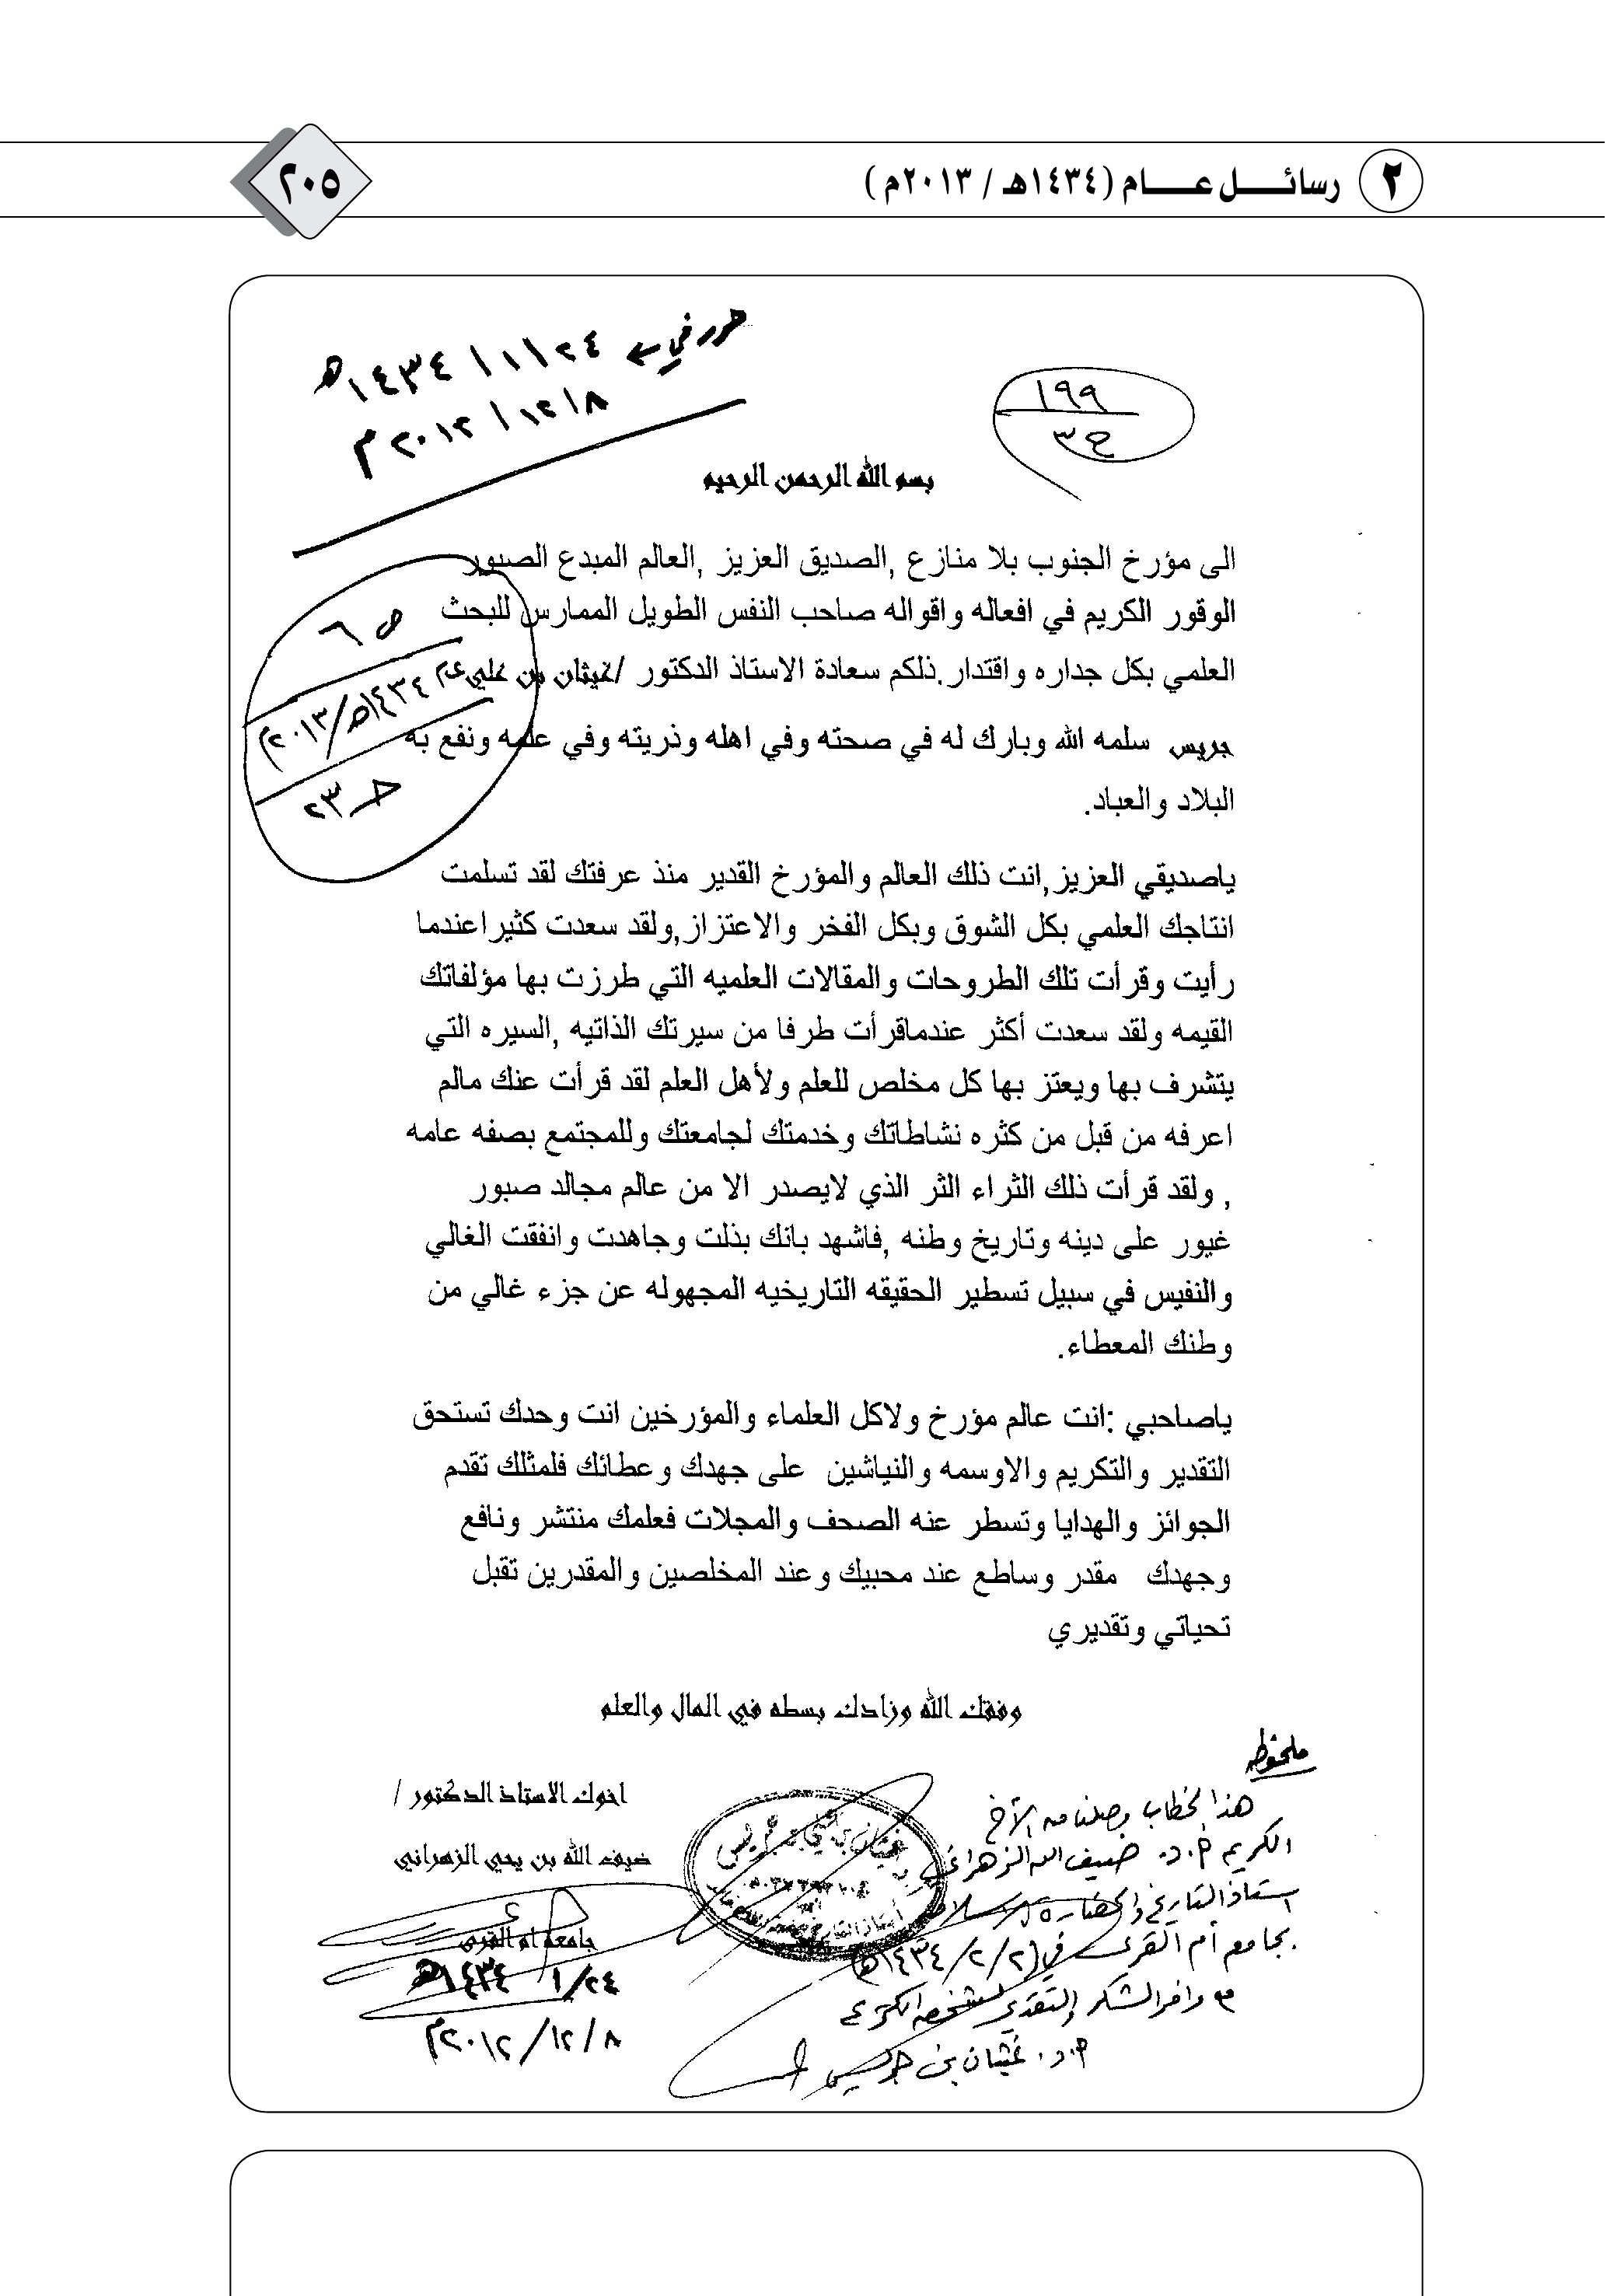 ٢ رسائل عام (١٤٣٤هـ / ٢٠١٣م)
٢٠٥
حرر في ← ٢٤ / ١ / ١٤٣٤هـ
٨ / ١٢ / ٢٠١٢م
١٩٩
ج ٣
بسم الله الرحمن الرحيم
الى مؤرخ الجنوب بلا منازع ,الصديق العزيز ,العالم المبدع الصبور
الوقور الكريم في افعاله واقواله صاحب النفس الطويل الممارس للبحث
العلمي بكل جداره واقتدار.ذلكم سعادة الاستاذ الدكتور /غيثان بن علي
جريس سلمه الله وبارك له في صحته وفي اهله وذريته وفي علمه ونفع به
البلاد والعباد.
ص ٦
عام ١٤٣٤هـ/٢٠١٣م
جـ ٢٣
ياصديقي العزيز,انت ذلك العالم والمؤرخ القدير منذ عرفتك لقد تسلمت
انتاجك العلمي بكل الشوق وبكل الفخر والاعتزاز,ولقد سعدت كثيراعندما
رأيت وقرأت تلك الطروحات والمقالات العلميه التي طرزت بها مؤلفاتك
القيمه ولقد سعدت أكثر عندماقرأت طرفا من سيرتك الذاتيه ,السيره التي
يتشرف بها ويعتز بها كل مخلص للعلم ولأهل العلم لقد قرأت عنك مالم
اعرفه من قبل من كثره نشاطاتك وخدمتك لجامعتك وللمجتمع بصفه عامه
, ولقد قرأت ذلك الثراء الثر الذي لايصدر الا من عالم مجالد صبور
غيور على دينه وتاريخ وطنه ,فاشهد بانك بذلت وجاهدت وانفقت الغالي
والنفيس في سبيل تسطير الحقيقه التاريخيه المجهوله عن جزء غالي من
وطنك المعطاء.
ياصاحبي :انت عالم مؤرخ ولاكل العلماء والمؤرخين انت وحدك تستحق
التقدير والتكريم والاوسمه والنياشين على جهدك وعطائك فلمثلك تقدم
الجوائز والهدايا وتسطر عنه الصحف والمجلات فعلمك منتشر ونافع
وجهدك مقدر وساطع عند محبيك وعند المخلصين والمقدرين تقبل
تحياتي وتقديري
وفقك الله وزادك بسطه في المال والعلم
اخوك الاستاذ الدكتور /
ضيف الله بن يحي الزهراني
جامعه ام القرى
٢٤/ ١ ١٤٣٤هـ
٨ / ١٢ / ٢٠١٢م
ملحوظه
هذا الخطاب وصلنا من الأخ
الكريم أ.د. ضيف الله الزهراني
استاذ التاريخ والحضارة الإسلامية
بجامعة أم القرى في (٢/ ٢/ ١٤٣٤هـ)
وافر الشكر والتقدير لشخصه الكريم
أ.د. غيثان بن جريس